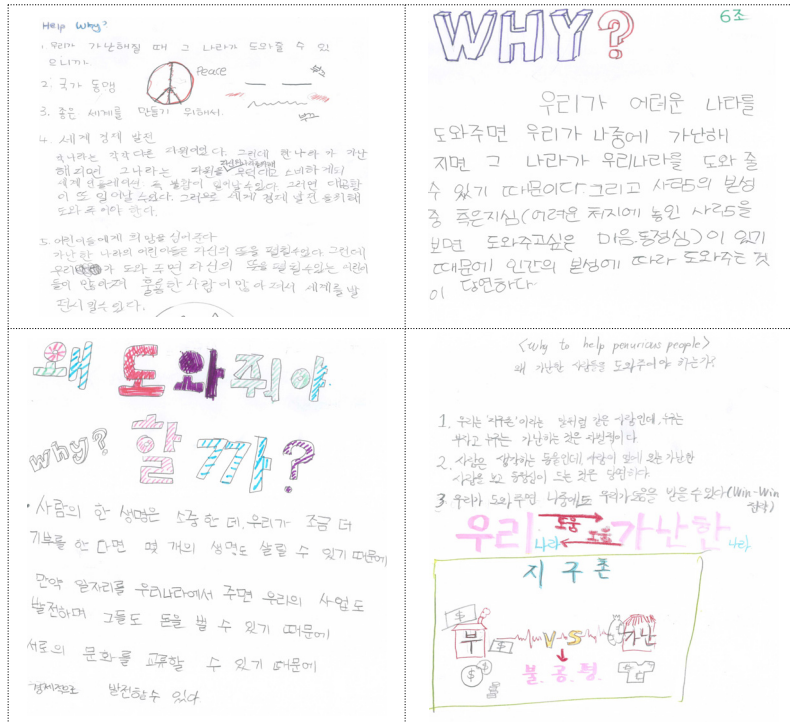 Help Why?
1. 우리가 가난해질 때 그 나라가 도와줄 수 있
으니까.
2. 국가 동맹
Peace
3. 좋은 세계를 만들기 위해서.
4. 세계 경제 발전
각나라는 각각 다른 자원이있다. 그런데 한나라가 가난
해지면 그나라는 자원을 소비하게되
세계 인플레이션, 즉 불황이 일어날수있다. 그러면 대공황
이 또 일어날 수있다. 그러므로 세계 경제 발전을 위해
도와줘야 한다.
5. 어린이들에게 희망을 심어준다
가난한 나라의 어린이들은 자신의 뜻을 펼칠수없다. 그런데
우리가 도와주면 자신의 뜻을 펼칠수있는 어린이
들이 많아져 훌륭한 사람이 많아져서 세계를 발
전시킬수있다.
WHY?
6조
우리가 어려운 나라를
도와주면 우리가 나중에 가난해
지면 그 나라가 우리나라를 도와 줄
수 있기 때문이다. 그리고 사람의 본성
중 측은지심(어려운 처지에 놓인 사람을
보면 도와주고싶은 마음·동정심)이 있기
때문에 인간의 본성에 따라 도와주는 것
이 당연하다
왜 도와줘야
why? 할까?
· 사람의 한 생명은 소중한데, 우리가 조금 더
기부를 한다면 몇 개의 생명도 살릴 수 있기 때문에
만약 일자리를 우리나라에서 주면 우리의 사업도
발전하며 그들도 돈을 벌 수 있기 때문에
서로의 문화를 교류할 수 있기 때문에
경제적으로 발전할수 있다
<Why to help penurious people>
왜 가난한 사람들을 도와주어야 하는가?
1. 우리는 '지구촌'이라는 말처럼 같은 사람인데, 누구는
부자고 누구는 가난하는 것은 차별적이다
2. 사람은 생각하는 동물인데, 사람이 앞에 있는 가난한
사람을 보고 동정심이 드는 것은 당연하다
3. 우리가 도와주면 나중에도 우리가 도움을 받을 수 있다 (Win-Win
전략)
우리나라 도움 도움 가난한나라
지구촌
부 VS 가난
불.공.평.